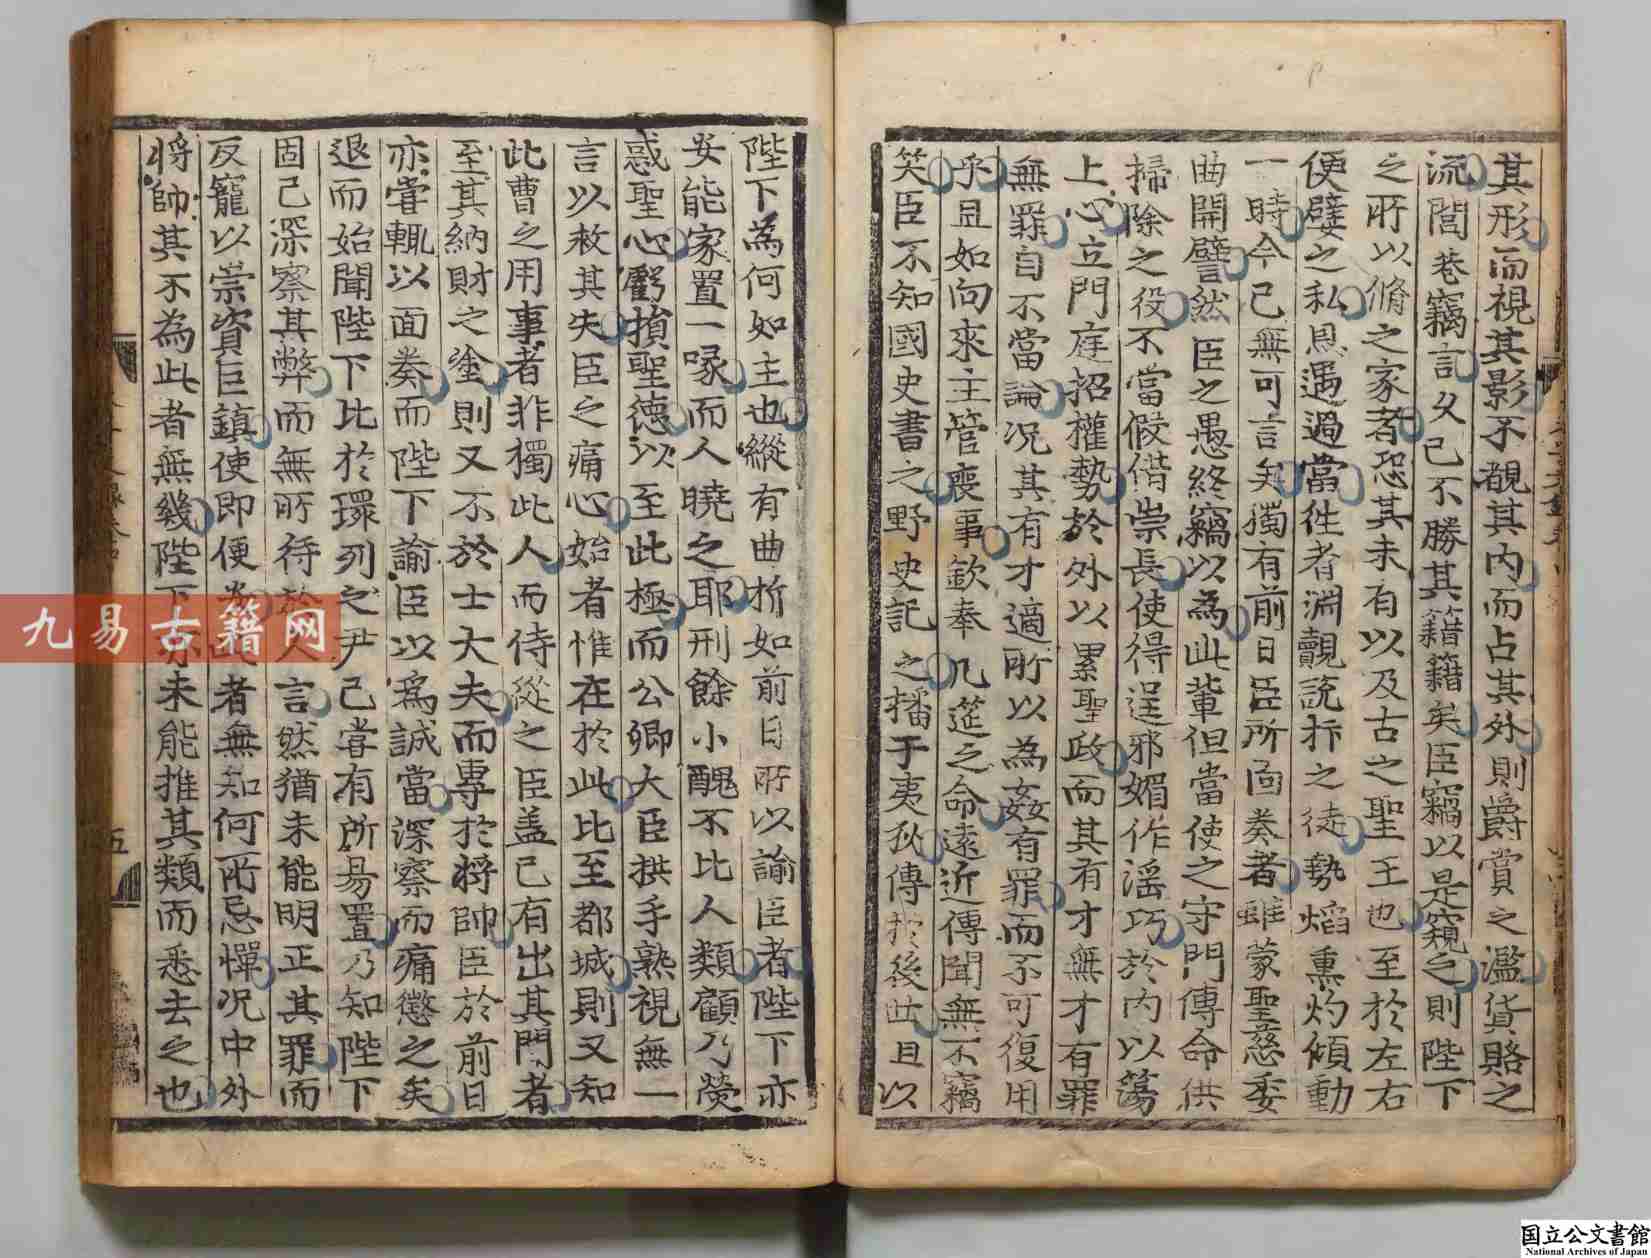 其形而視其影不覩其内而占其外則爵賞之濫貨賂之
流閭巷竊言久已不勝其籍籍矣臣竊以是窺之則陛下
之所以脩之家者恐其未有以及古之聖王也至於左右
便嬖之私恩遇過當徃者淵覿說抃之徒勢焰熏灼傾動
一時今已無可言矣獨有前日臣所面奏者雖蒙聖慈委
曲開譬然臣之愚終竊以為此輩但當使之守門傳命供
掃除之役不當假借崇長使得逞邪媚作滛巧於内以蕩
上心立門庭招權勢於外以累聖政而其有才無才有罪
無罪自不當論况其有才適所以為姦有罪而不可復用
乎且如向來主管喪事欽奉几筵之命遠近傳聞無不竊
笑臣不知國史書之野史記之播于夷狄傳於後世且以
陛下為何如主也縱有曲折如前日所以諭臣者陛下亦
安能家置一喙而人曉之耶刑餘小醜不比人類顧乃熒
惑聖心虧損聖德以至此極而公卿大臣拱手熟視無一
言以救其失臣之痛心始者惟在於此比至都城則又知
此曹之用事者非獨此人而侍從之臣盖已有出其門者
至其納財之塗則又不於士大夫而專於將帥臣於前日
亦嘗輒以面奏而陛下諭臣以為誠當深察而痛懲之矣
退而始聞陛下比於環列之尹已嘗有所昜置乃知陛下
固已深察其弊而無所待於人言然猶未能明正其罪而
反寵以崇資巨鎮使即便為此者無知何所忌憚况中外
將帥其不為此者無幾陛下亦未能推其類而悉去之也
五
九易古籍网
国立公文書館
National Archives of Japan